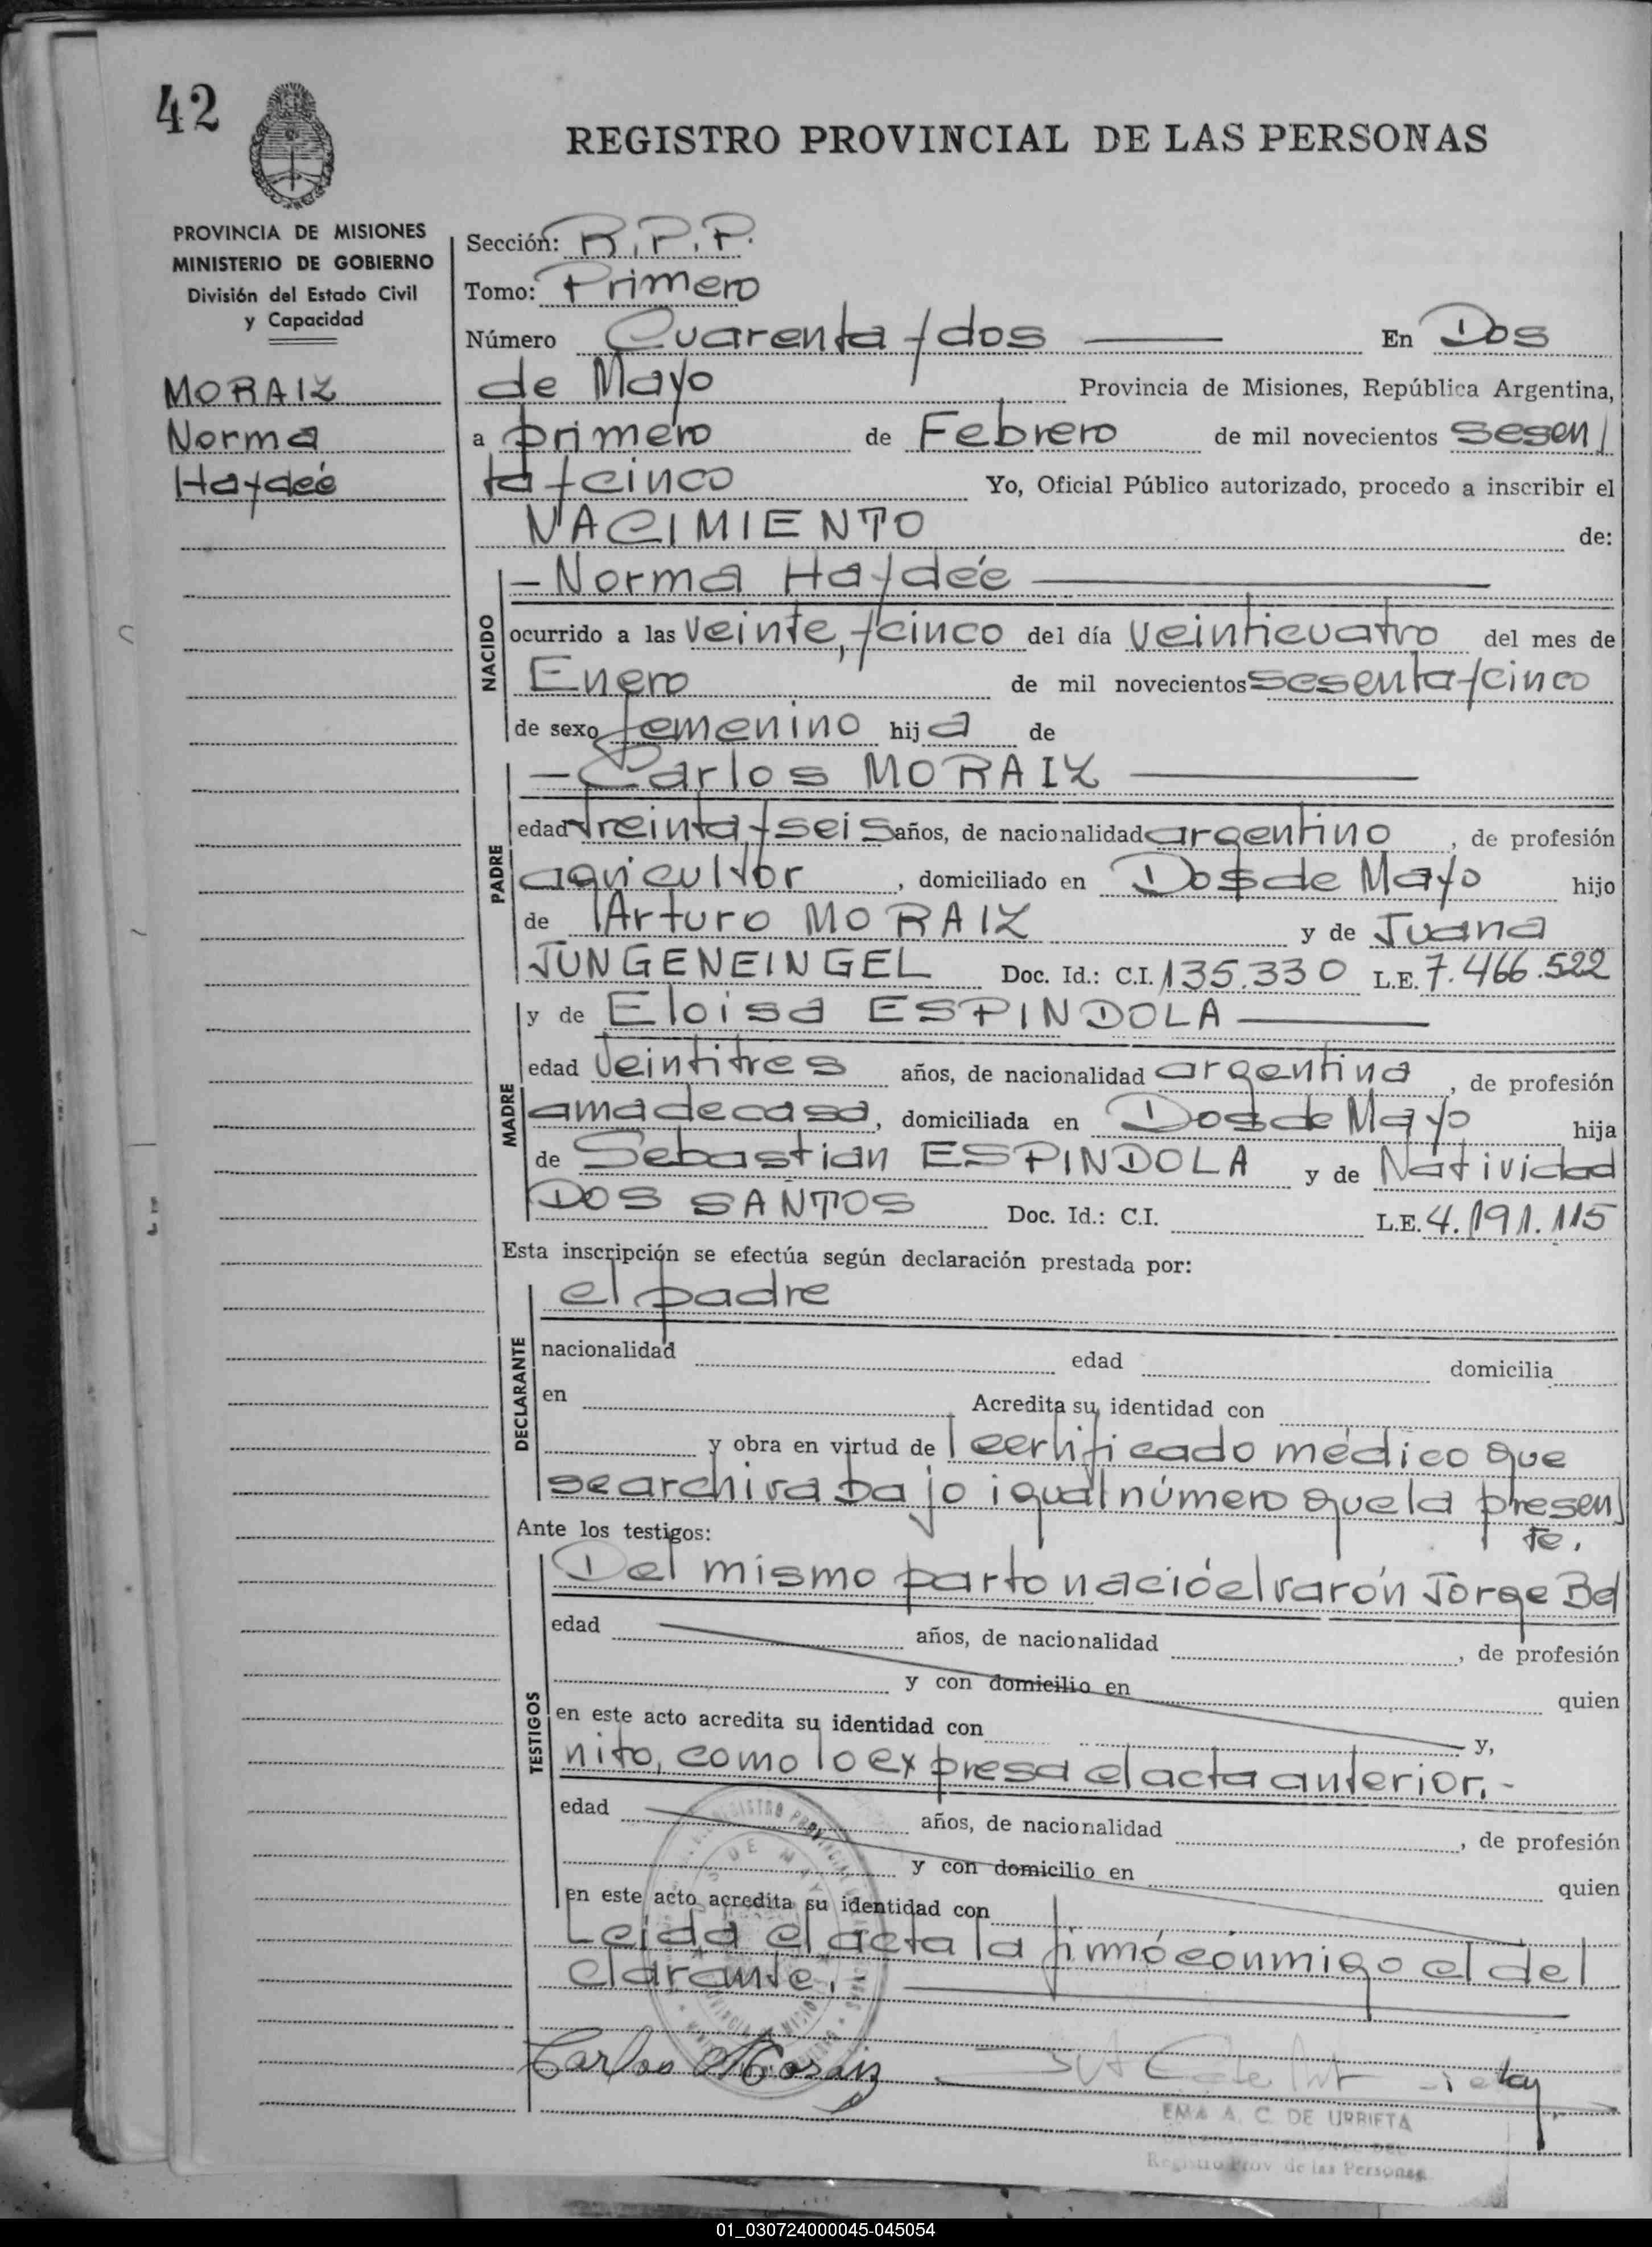 42
REGISTRO PROVINCIAL DE LAS PERSONAS
PROVINCIA DE MISIONES
MINISTERIO DE GOBIERNO
División del Estado Civil
y Capacidad
MORAIZ
Norma
Haydeé
Sección: R.P.P.
Tomo: Primero
Número Cuarenta y dos En Dos
de Mayo Provincia de Misiones, República Argentina,
a primero de Febrero de mil novecientos sesen/
ta y cinco Yo, Oficial Público autorizado, procedo a inscribir el
NACIMIENTO de:
NACIDO
— Norma Haydeé —
ocurrido a las veinte, y cinco del día veinticuatro del mes de
Enero de mil novecientos sesenta y cinco
de sexo femenino hija de
PADRE
— Carlos MORAIZ —
edad treinta y seis años, de nacionalidad argentino, de profesión
agricultor, domiciliado en Dos de Mayo hijo
de Arturo MORAIZ y de Juana
JUNGENEINGEL Doc. Id.: C.I. 135.330 L.E. 7.466.522
MADRE
y de Eloisa ESPINDOLA —
edad veintitres años, de nacionalidad argentina, de profesión
ama de casa, domiciliada en Dos de Mayo hija
de Sebastian ESPINDOLA y de Natividad
DOS SANTOS Doc. Id.: C.I. L.E. 4.191.115
Esta inscripción se efectúa según declaración prestada por:
DECLARANTE
el padre
nacionalidad edad domicilia
en Acredita su identidad con
y obra en virtud de l certificado médico que
se archiva bajo igual número que la presen/
te.
Ante los testigos:
TESTIGOS
Del mismo parto nació el varón Jorge Be/
edad años, de nacionalidad , de profesión
y con domicilio en quien
en este acto acredita su identidad con y,
nito, como lo expresa el acta anterior.-
edad años, de nacionalidad , de profesión
y con domicilio en quien
en este acto acredita su identidad con
Leida el acta la firmó conmigo el de/
clarante.
Carlos Moraiz
EMA A. C. DE URRIETA
Registro Prov de las Personas
01_030724000045-045054